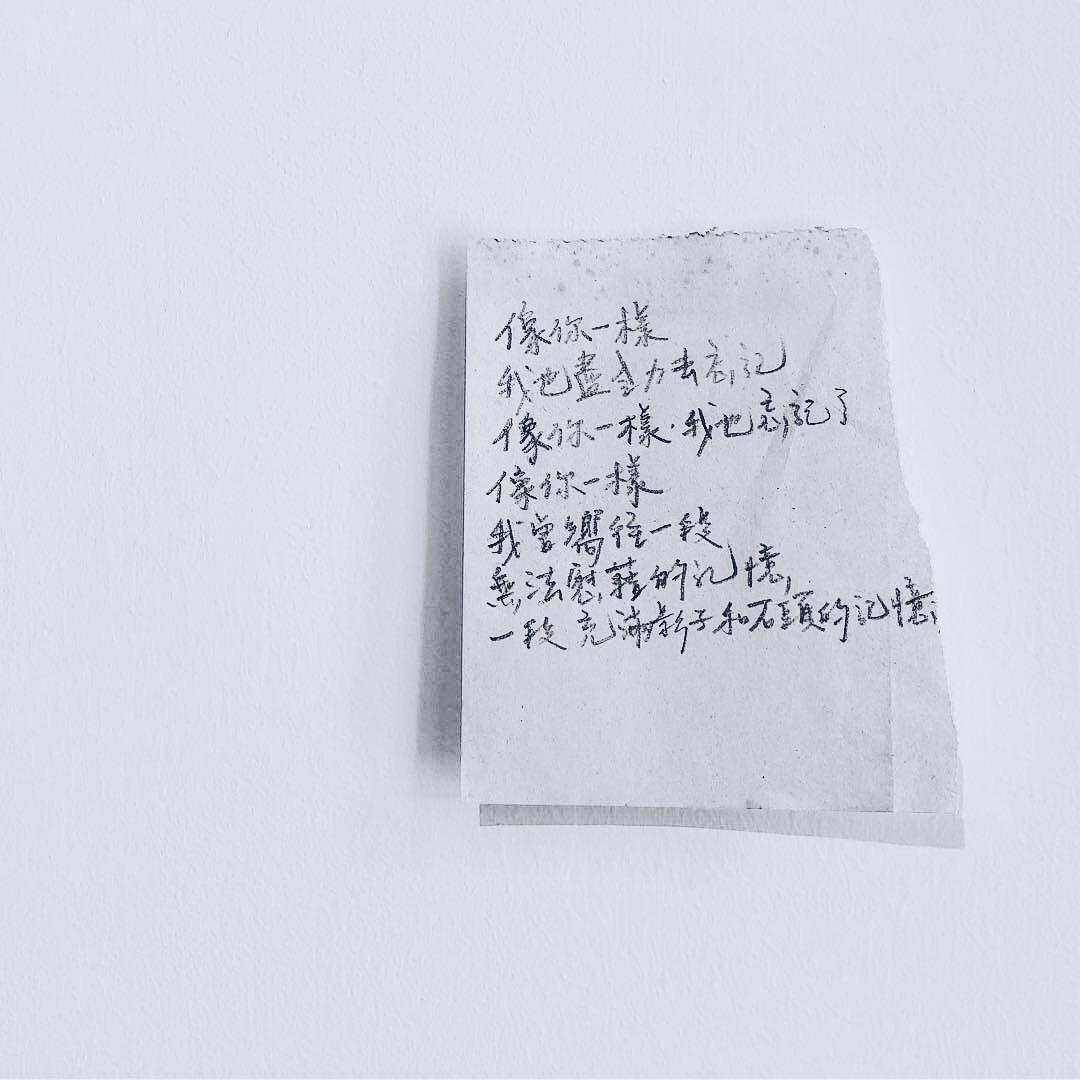 像你一樣
我也盡全力去忘記
像你一樣．我也忘記了
像你一樣
我曾嚮往一段
無法慰藉的記憶，
一段充滿影子和石頭的記憶，